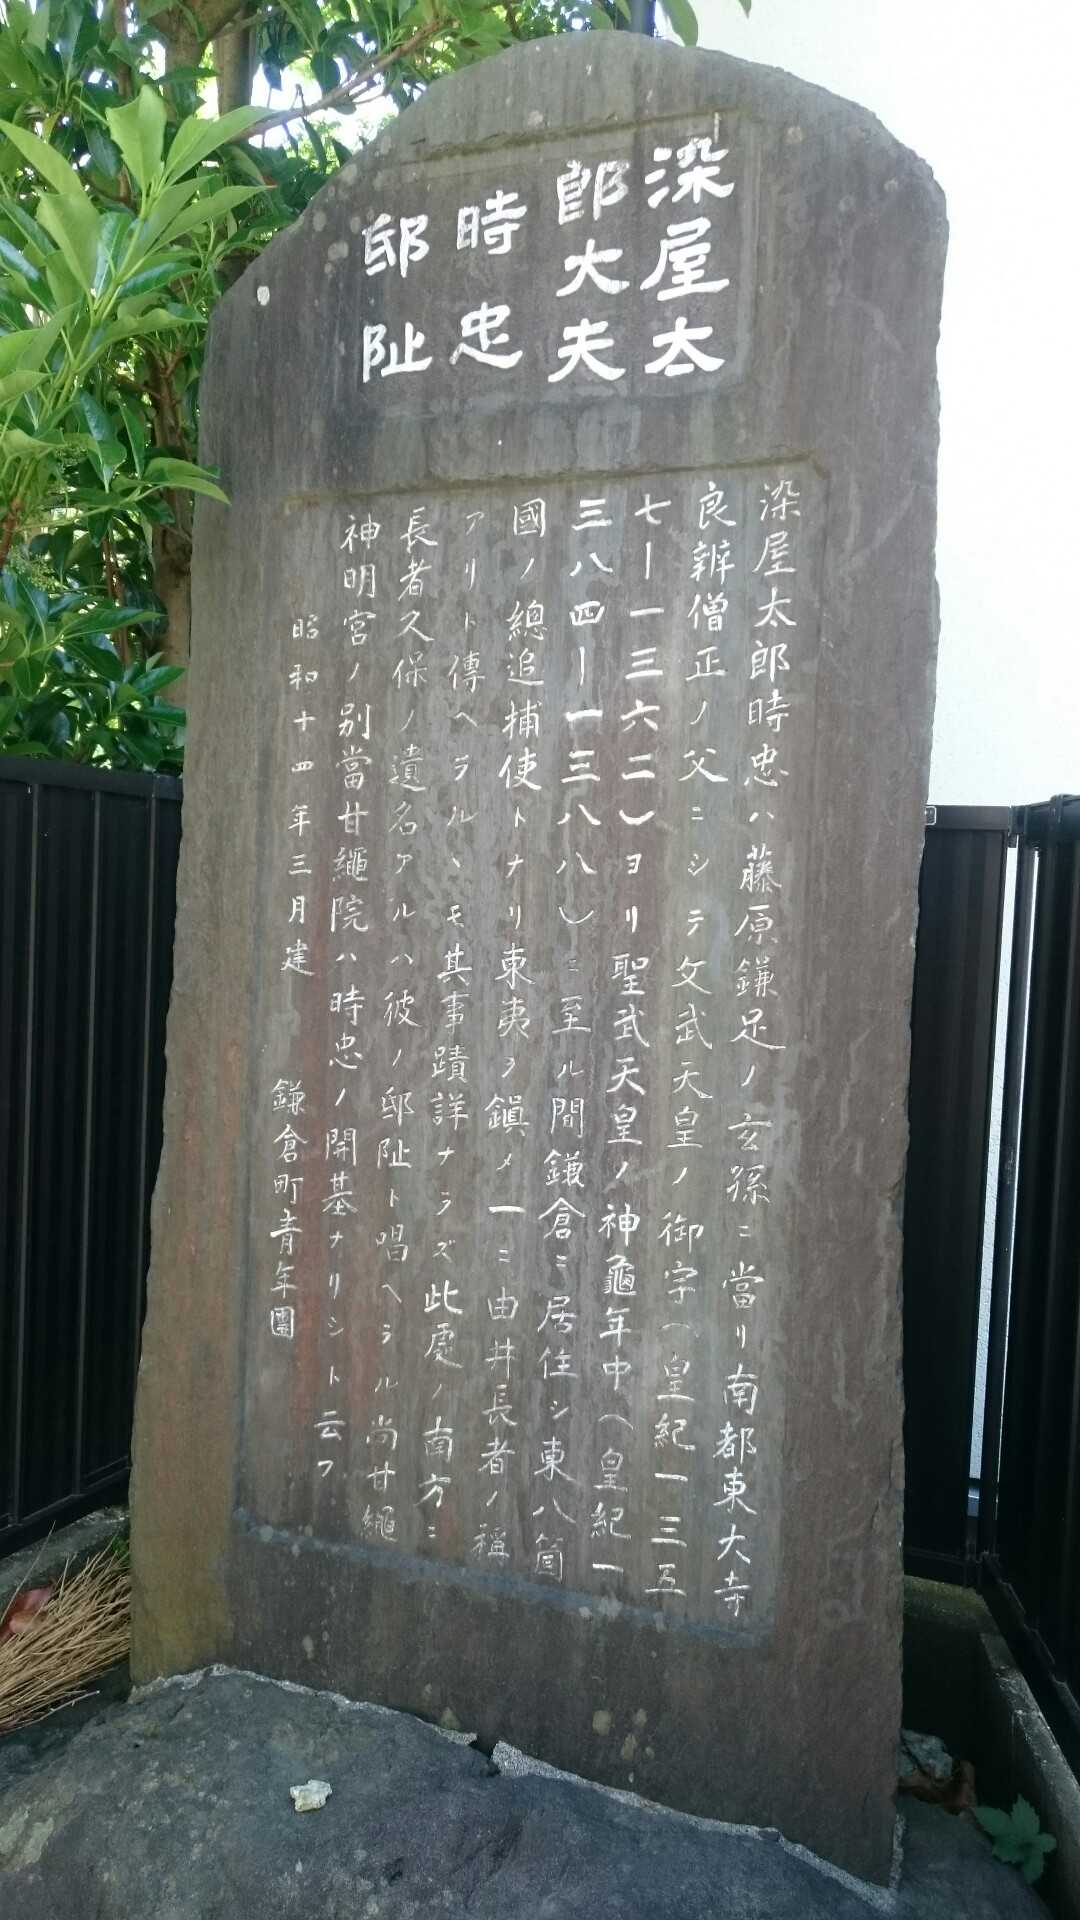 染屋太
郎大夫
時忠
邸阯
染屋太郎時忠ハ藤原鎌足ノ玄孫ニ當リ南都東大寺
良辨僧正ノ父ニシテ文武天皇ノ御宇(皇紀一三五
七ー一三六二)ヨリ聖武天皇ノ神龜年中(皇紀一
三八四ー一三八八)ニ至ル間鎌倉ニ居住シ東八箇
國ノ總追捕使トナリ東夷ヲ鎭メ一ニ由井長者ノ稱
アリト傳ヘラルヽモ其事蹟詳ナラズ此處ノ南方ニ
長者久保ノ遺名アルハ彼ノ邸阯ト唱ヘラル尚甘繩
神明宮ノ別當甘繩院ハ時忠ノ開基ナリシト云フ
昭和十四年三月建 鎌倉町青年團